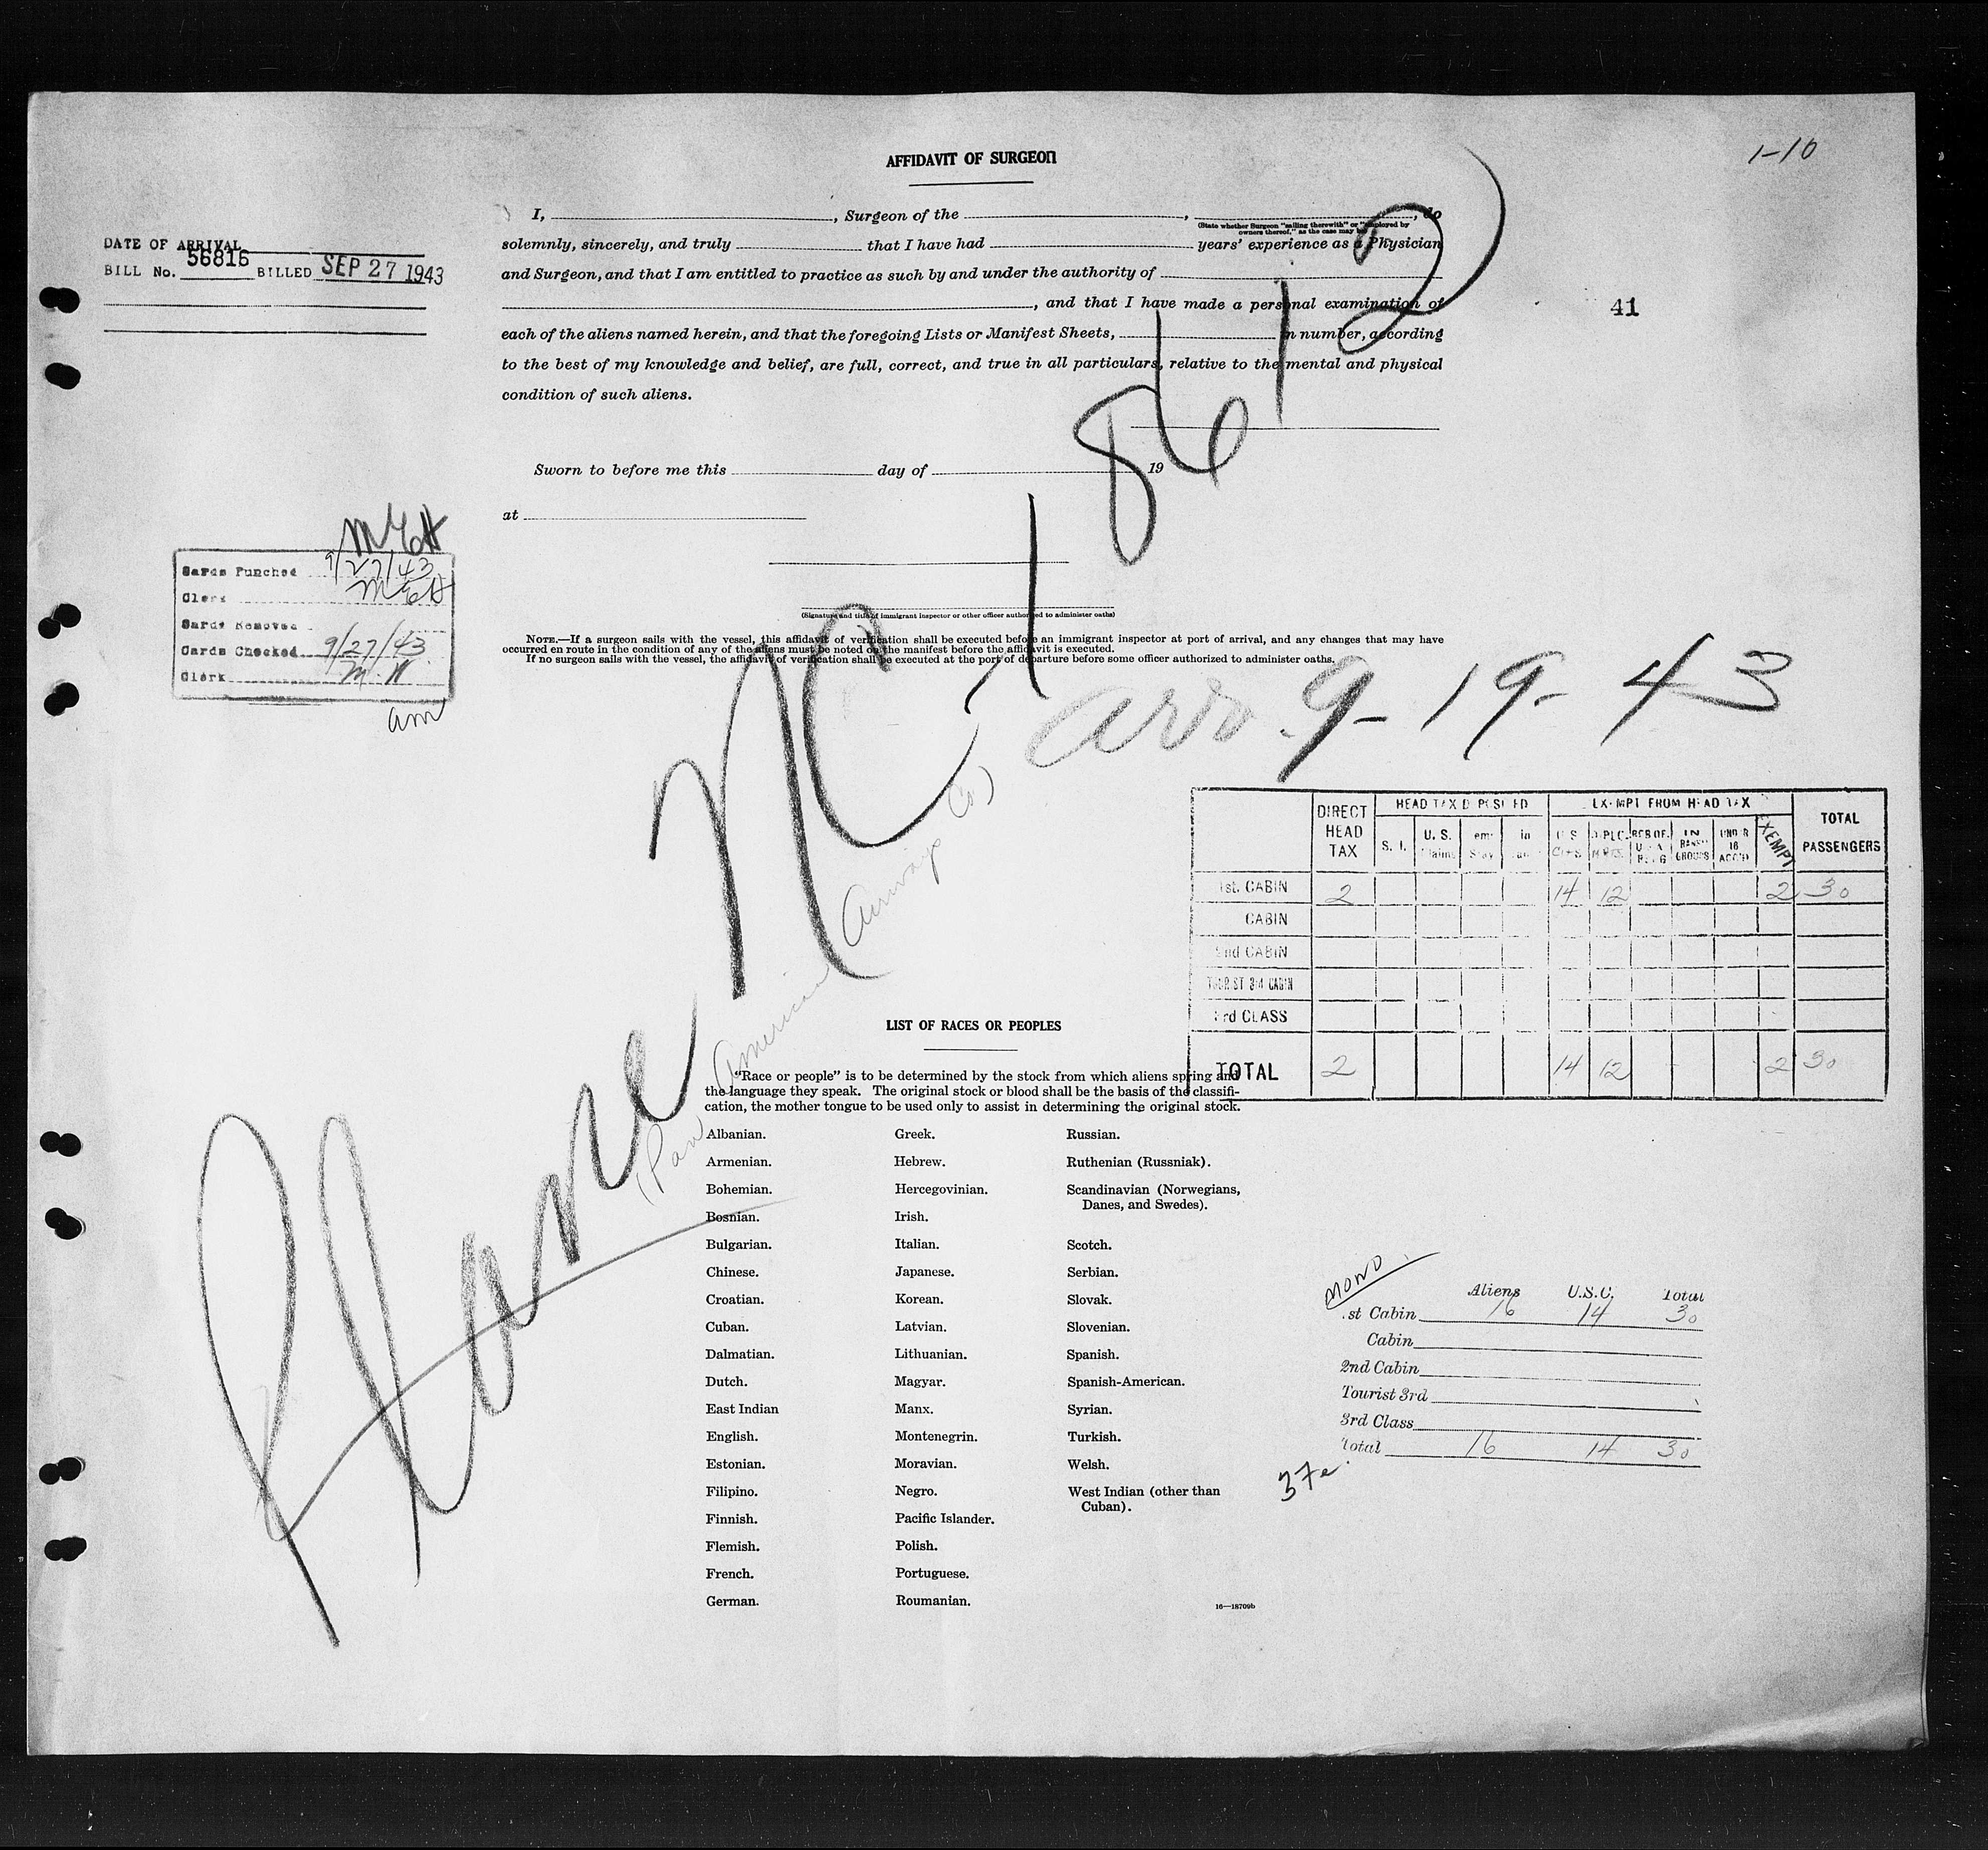 1-10
AFFIDAVIT OF SURGEON
I, , Surgeon of the , , do
(State whether Surgeon "sailing therewith" or "employed by
owners thereof," as the case may be)
solemnly, sincerely, and truly that I have had years' experience as a Physician
and Surgeon, and that I am entitled to practice as such by and under the authority of
, and that I have made a personal examination of
each of the aliens named herein, and that the foregoing Lists or Manifest Sheets, in number, according
to the best of my knowledge and belief, are full, correct, and true in all particulars, relative to the mental and physical
condition of such aliens.
Sworn to before me this day of 19
at
(Signature and title of immigrant inspector or other officer authorized to administer oaths)
NOTE.—If a surgeon sails with the vessel, this affidavit of verification shall be executed before an immigrant inspector at port of arrival, and any changes that may have
occurred en route in the condition of any of the aliens must be noted on the manifest before the affidavit is executed.
If no surgeon sails with the vessel, the affidavit of verification shall be executed at the port of departure before some officer authorized to administer oaths.
DATE OF ARRIVAL
BILL No. 56816 BILLED SEP 27 1943
41
MEH
Cards Punched 9/27/43
Clerk MEH
Cards Removed
Cards Checked 9/27/43
Clerk M.N.
am
Plane NC-18612
(Pan American Airways Co)
arr. 9-19-43
DIRECT HEAD TAX
HEAD TAX DEPOSITED
EXEMPT FROM HEAD TAX
TOTAL PASSENGERS
S. I. U. S.
EXEMPT
1st. CABIN 2 14 12 2 30
CABIN
2nd CABIN
TOURIST 3rd CABIN
3rd CLASS
TOTAL 2 14 12 2 30
LIST OF RACES OR PEOPLES
"Race or people" is to be determined by the stock from which aliens spring and
the language they speak. The original stock or blood shall be the basis of the classifi-
cation, the mother tongue to be used only to assist in determining the original stock.
Albanian.
Armenian.
Bohemian.
Bosnian.
Bulgarian.
Chinese.
Croatian.
Cuban.
Dalmatian.
Dutch.
East Indian
English.
Estonian.
Filipino.
Finnish.
Flemish.
French.
German.
Greek.
Hebrew.
Hercegovinian.
Irish.
Italian.
Japanese.
Korean.
Latvian.
Lithuanian.
Magyar.
Manx.
Montenegrin.
Moravian.
Negro.
Pacific Islander.
Polish.
Portuguese.
Roumanian.
Russian.
Ruthenian (Russniak).
Scandinavian (Norwegians,
Danes, and Swedes).
Scotch.
Serbian.
Slovak.
Slovenian.
Spanish.
Spanish-American.
Syrian.
Turkish.
Welsh.
West Indian (other than
Cuban).
16—18709b
MONO
Aliens U.S.C. Total
1st Cabin 16 14 30
Cabin
2nd Cabin
Tourist 3rd
3rd Class
Total 16 14 30
37e